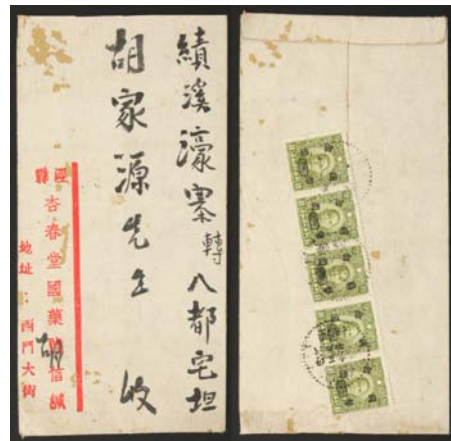 績溪濠寨轉八都宅坦
胡家源先生 收
涇縣
杏春堂國藥號信緘
胡
地址：西門大街